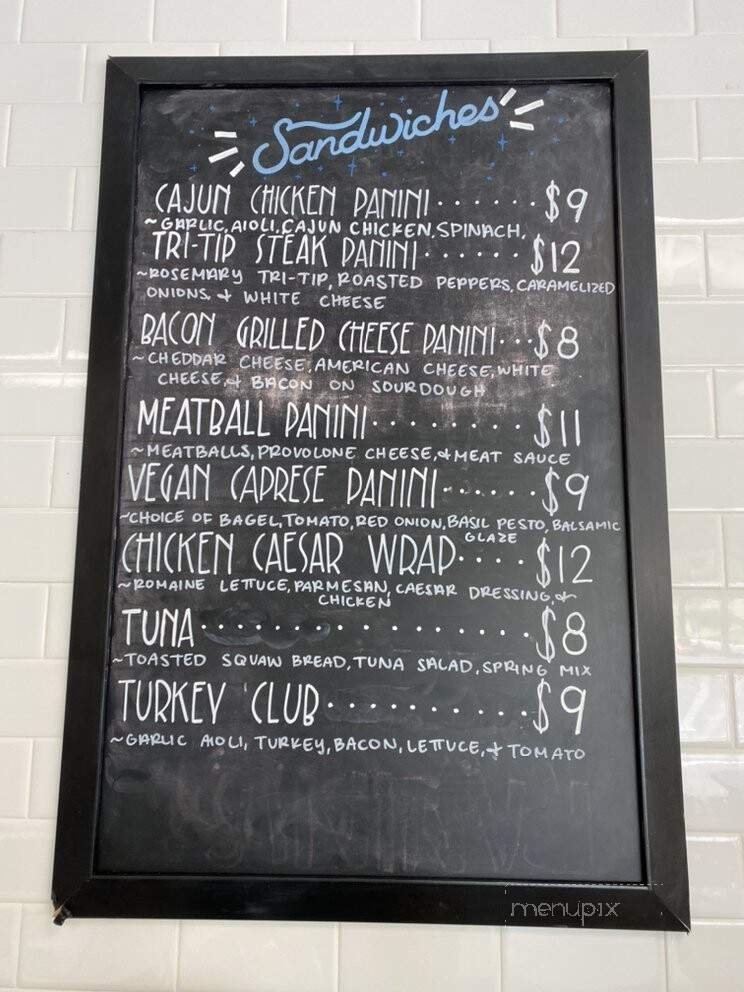 Sandwiches
CAJUN CHICKEN PANINI . . . . . . $9
~GARLIC, AIOLI, CAJUN CHICKEN, SPINACH,
TRI-TIP STEAK PANINI . . . . . . $12
~ROSEMARY TRI-TIP, ROASTED PEPPERS, CARAMELIZED
ONIONS, & WHITE CHEESE
BACON GRILLED CHEESE PANINI . . . $8
~CHEDDAR CHEESE, AMERICAN CHEESE, WHITE
CHEESE, & BACON ON SOURDOUGH
MEATBALL PANINI . . . . . . . . $11
~MEATBALLS, PROVOLONE CHEESE, & MEAT SAUCE
VEGAN CAPRESE PANINI . . . . . . $9
~CHOICE OF BAGEL, TOMATO, RED ONION, BASIL PESTO, BALSAMIC
GLAZE
CHICKEN CAESAR WRAP . . . . $12
~ROMAINE LETTUCE, PARMESAN, CAESAR DRESSING, &
CHICKEN
TUNA . . . . . . . . . . . . . . . . $8
~TOASTED SQUAW BREAD, TUNA SALAD, SPRING MIX
TURKEY CLUB . . . . . . . . . . . $9
~GARLIC AIOLI, TURKEY, BACON, LETTUCE, + TOMATO
menupix